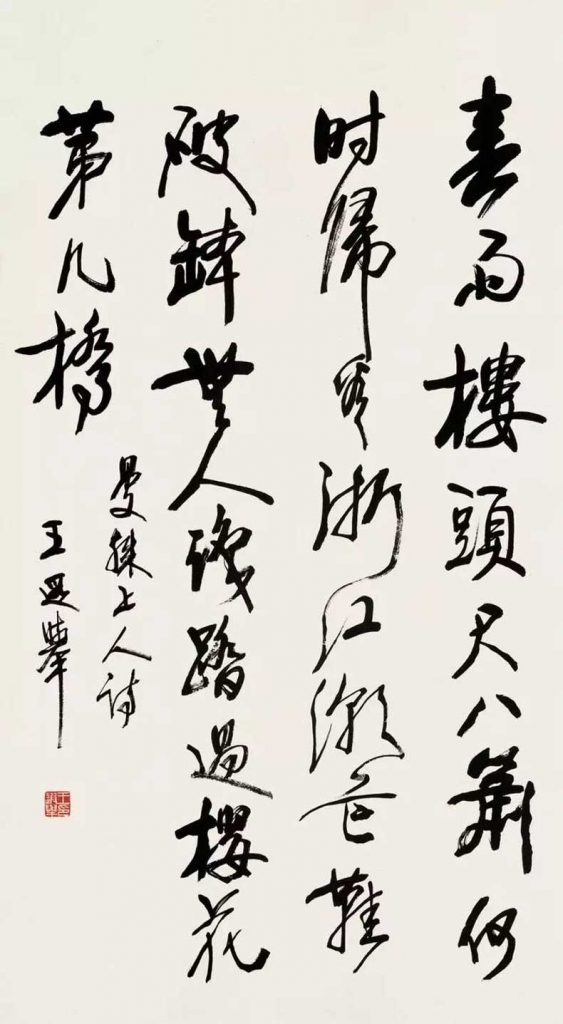 春雨樓頭尺八簫何
时歸看浙江潮芒鞋
破缽無人識踏過櫻花
第几橋
曼殊上人詩
王遐舉